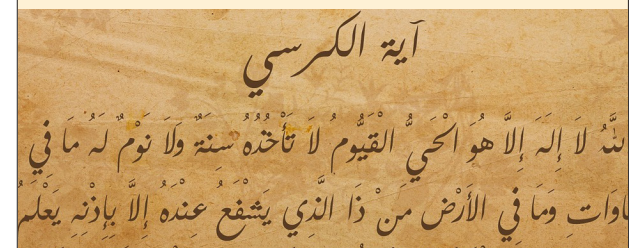 آية الكرسي
للَّهُ لَا إِلَهَ إِلَّا هُوَ الْحَيُّ الْقَيُّومُ لَا تَأْخُذُهُ سِنَةٌ وَلَا نَوْمٌ لَهُ مَا فِي
اوَاتِ وَمَا فِي الْأَرْضِ مَنْ ذَا الَّذِي يَشْفَعُ عِنْدَهُ إِلَّا بِإِذْنِهِ يَعْلَمُ